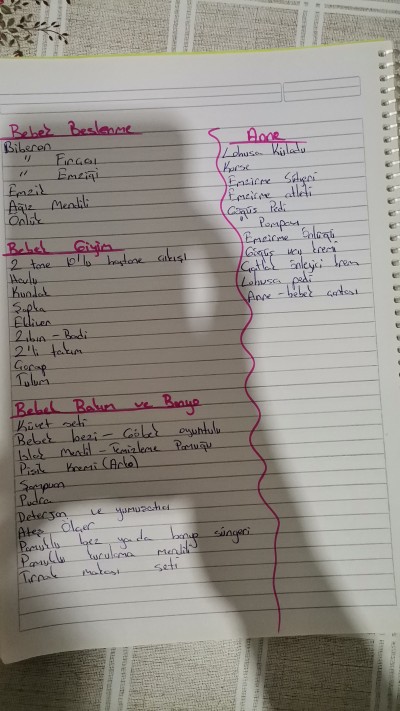 Bebek Beslenme
Biberon
" Fırçası
" Emziği
Emzik
Ağız Mendili
Önlük
Bebek Giyim
2 tane 10'lu hastane çıkışı
Havlu
Kundak
Şapka
Eldiven
Zıbın - Badi
2'li takım
Çorap
Tulum
Bebek Bakım ve Banyo
Küvet seti
Bebek bezi - Göbek oyuntulu
Islak Mendil - Temizleme Pamuğu
Pişik Kremi (Arko)
Şampuan
Pudra
Deterjan ve yumuşatıcı
Ateş Ölçer
Pamuklu bez ya da banyo süngeri
Pamuklu kurulama mendili
Tırnak makası seti
Anne
Lohusa Külodu
Korse
Emzirme Sütyeni
Emzirme atleti
Göğüs Pedi
" Pompası
Emzirme Önlüğü
Göğüs ucu kremi
Çatlak önleyici krem
Lohusa pedi
Anne-bebek çantası